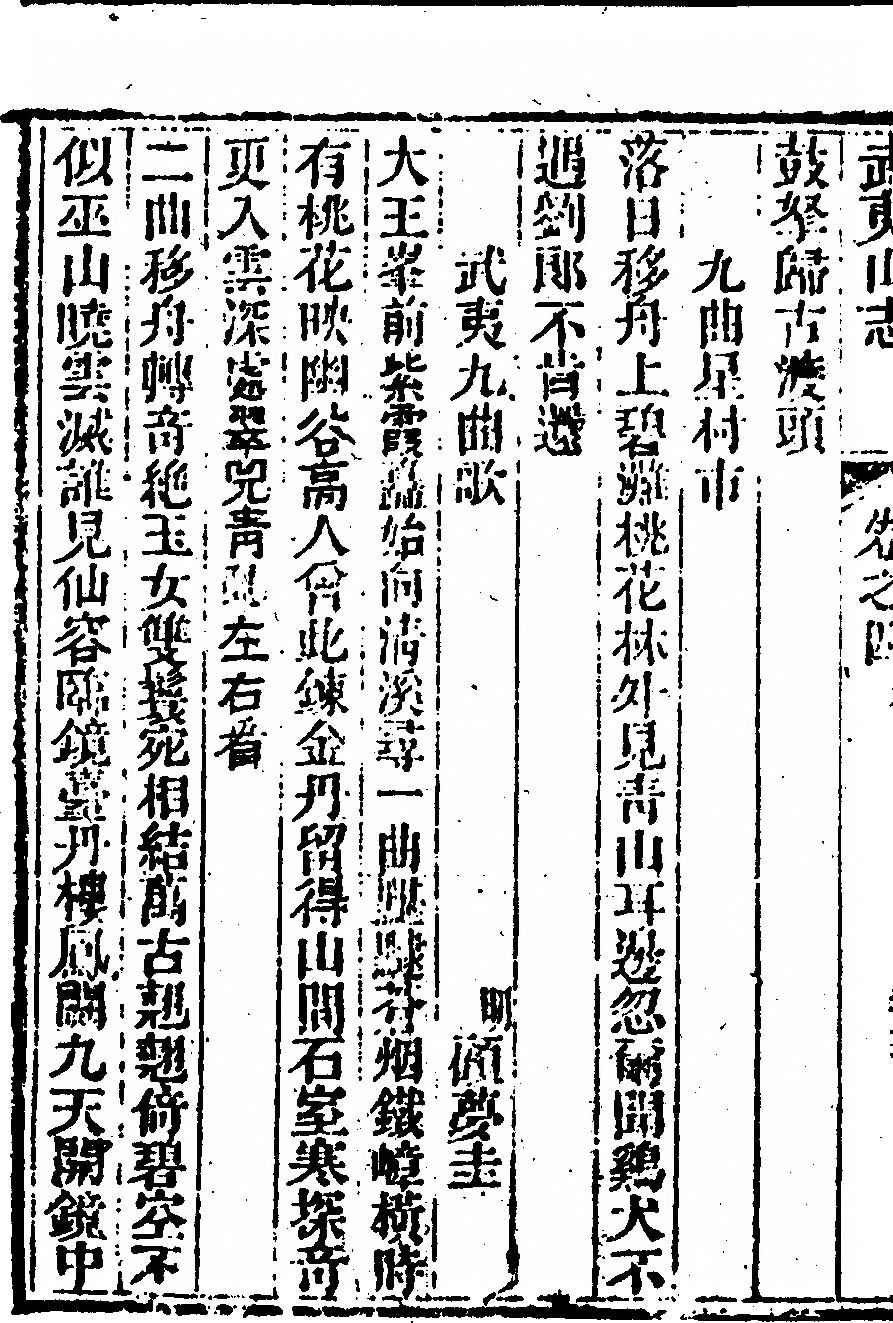 武夷山志 卷之四
鼓拏歸古渡頭
九曲星村市
落日移舟上碧灘桃花林外見青山耳邊忽爾聞鷄犬不
遇劉郎不肯還
武夷九曲歌 明 顧夢圭
大王峯前紫霞 始向清溪尋一曲 分烟鐵嶂橫時
有桃花映幽谷高人曾此鍊金丹留得山間石室寒探奇
更入雲深處翠兕青 左右看
二曲移舟轉奇絶玉女雙鬟宛相結萬古翹翹倚碧空不
似巫山曉雲滅誰見仙容臨鏡臺丹樓鳳闕九天開鏡中